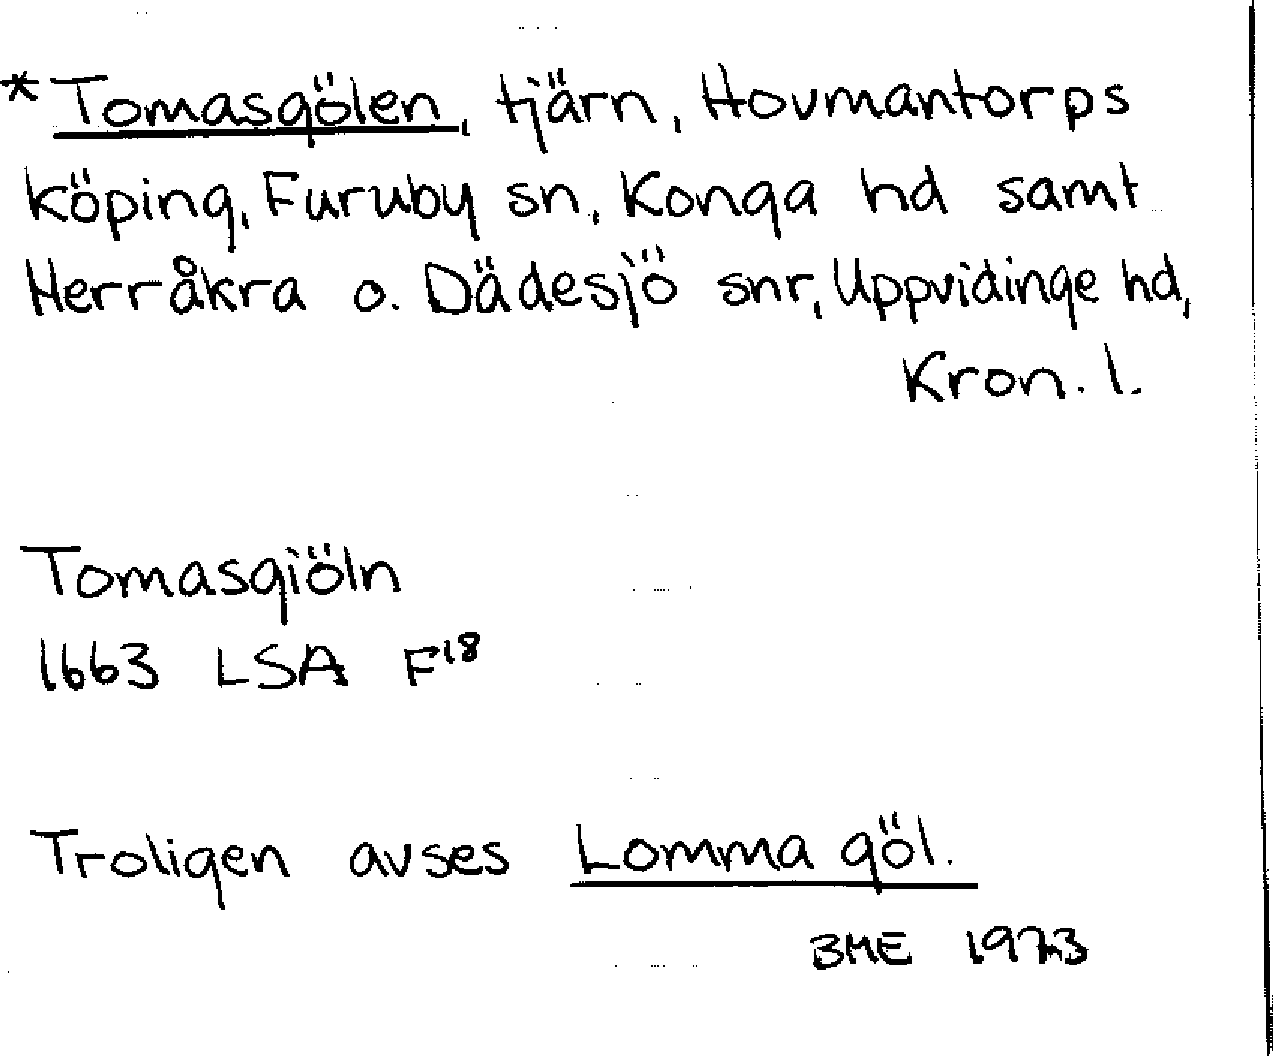 *Tomasgölen, tjärn, Hovmantorps
köping, Furuby sn, Konga hd samt
Herråkra o. Dädesjö snr, Uppvidinge hd,
Kron. l.
Tomasgiöln
1663 LSA F18
Troligen avses Lomma göl.
BME 1973